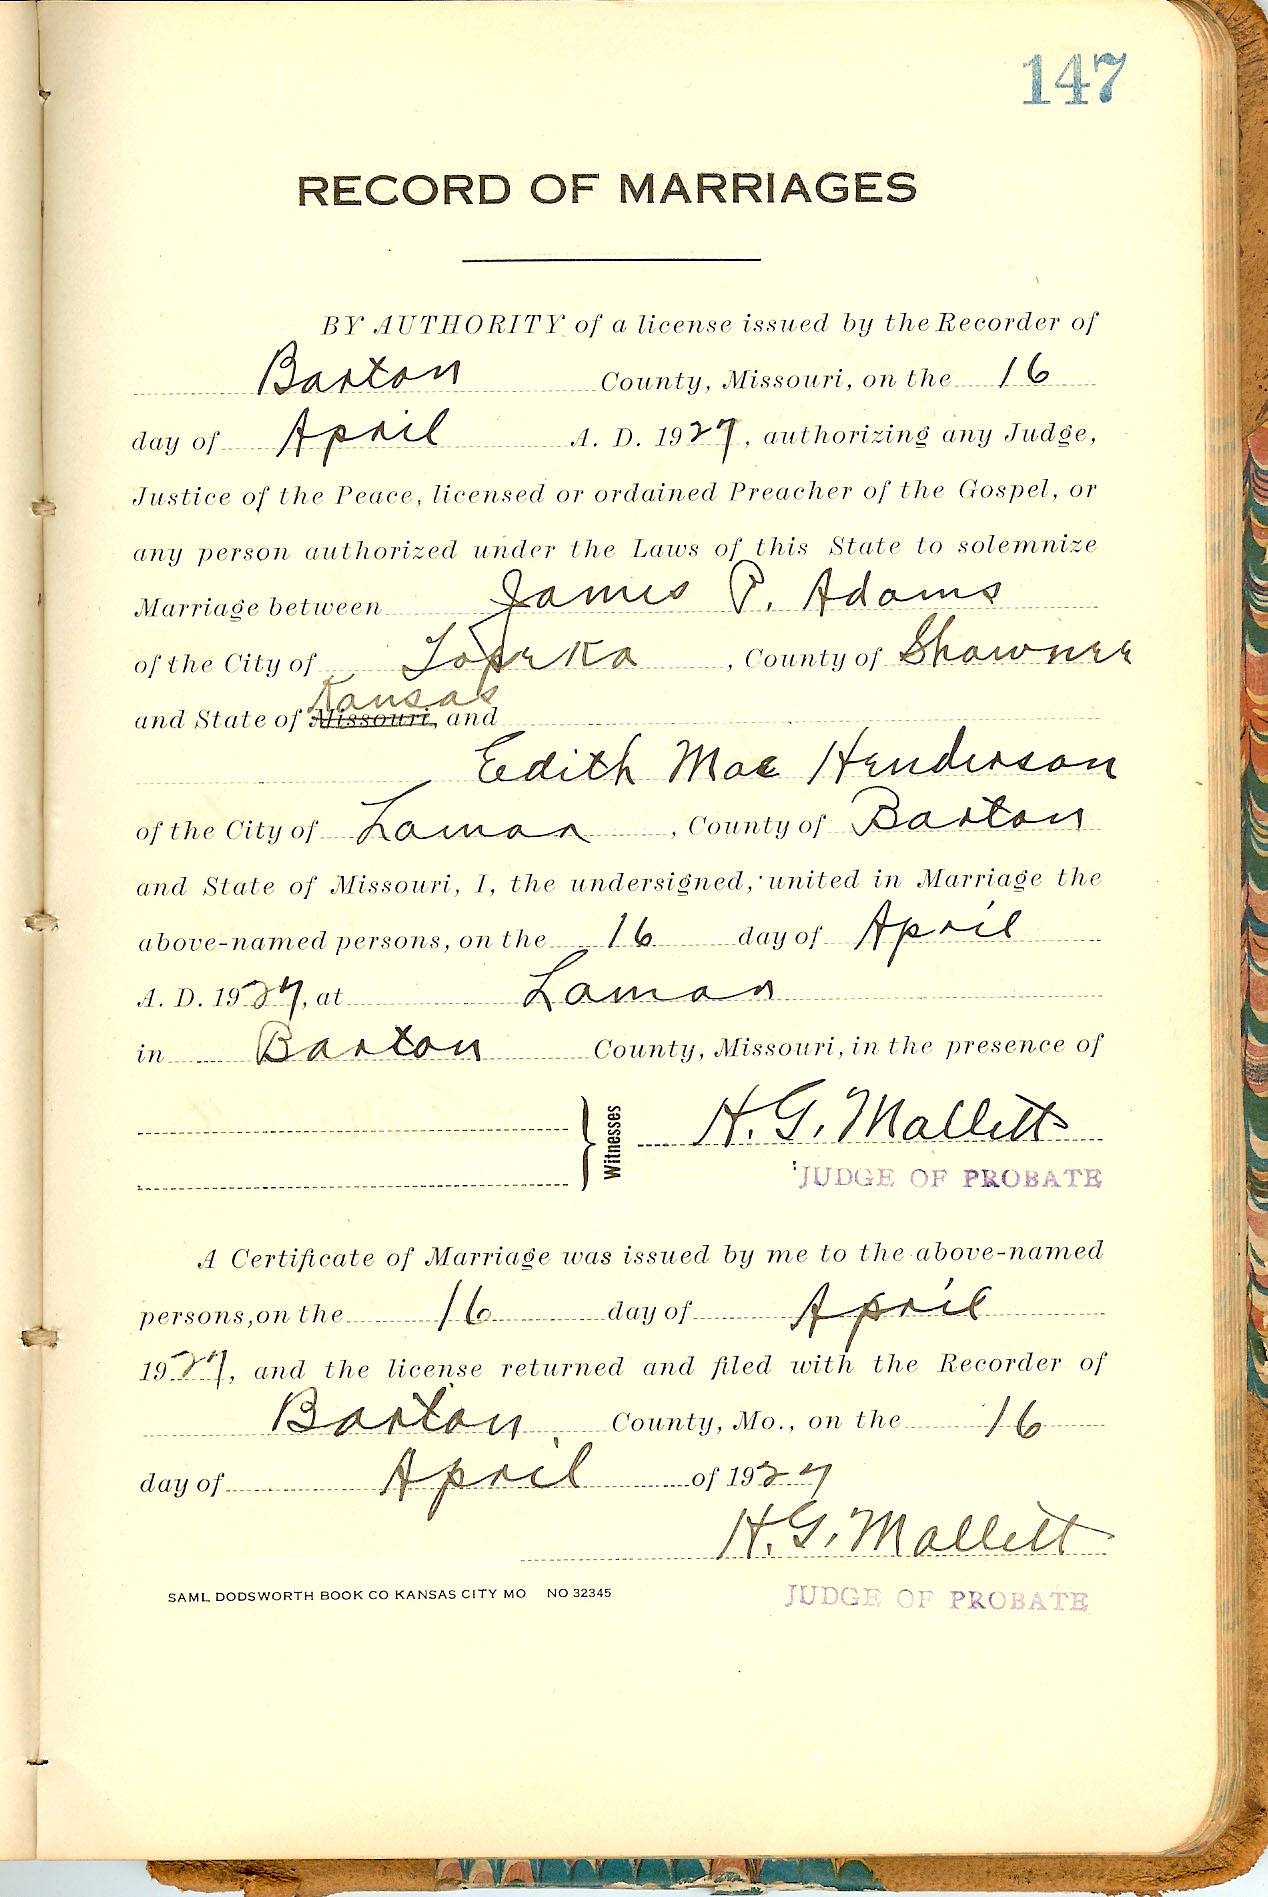 147
RECORD OF MARRIAGES
BY AUTHORITY of a license issued by the Recorder of
Barton County, Missouri, on the 16
day of April A. D. 1927, authorizing any Judge,
Justice of the Peace, licensed or ordained Preacher of the Gospel, or
any person authorized under the Laws of this State to solemnize
Marriage between James P. Adams
of the City of Topeka, County of Shawnee
Kansas
and State of Missouri, and
Edith Mae Henderson
of the City of Lamar, County of Barton
and State of Missouri, I, the undersigned, united in Marriage the
above-named persons, on the 16 day of April
A. D. 1927, at Lamar
in Barton County, Missouri, in the presence of
Witnesses H. G. Mallett
JUDGE OF PROBATE
A Certificate of Marriage was issued by me to the above-named
persons, on the 16 day of April
1927, and the license returned and filed with the Recorder of
Barton County, Mo., on the 16
day of April of 1927
H. G. Mallett
SAML DODSWORTH BOOK CO KANSAS CITY MO NO 32345 JUDGE OF PROBATE